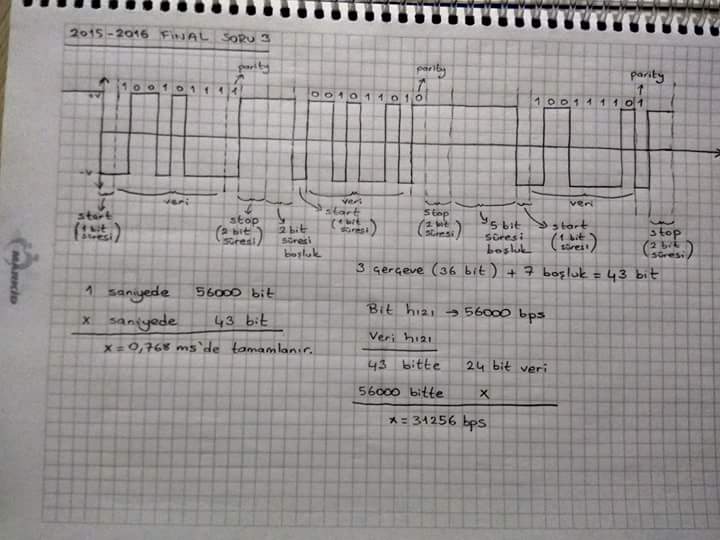 2015-2016 FINAL SORU 3
parity
parity
parity
+V
1 0 0 1 0 1 1 1 1
0 0 1 0 1 1 0 1 0
1 0 0 1 1 1 1 0 1
-V
start
(1 bit
süresi)
veri
stop
(2 bit
süresi)
2 bit
süresi
boşluk
start
(1 bit
süresi)
veri
stop
(2 bit
süresi)
5 bit
süresi
boşluk
start
(1 bit
süresi)
veri
stop
(2 bit
süresi)
3 çerçeve (36 bit) + 7 boşluk = 43 bit
1 saniyede 56000 bit
x saniyede 43 bit
x = 0,768 ms'de tamamlanır.
Bit hızı → 56000 bps
Veri hızı
43 bitte 24 bit veri
56000 bitte x
x = 31256 bps